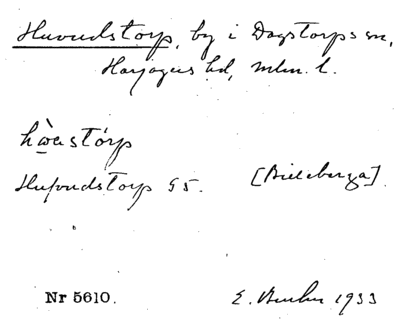 Huvudstorp, by i Dagstorps sn,
Harjagers hd, mlm. l.
hẁastórp
Hufvudstorp G5. [Billeberga].
Nr 5610. E. 1933